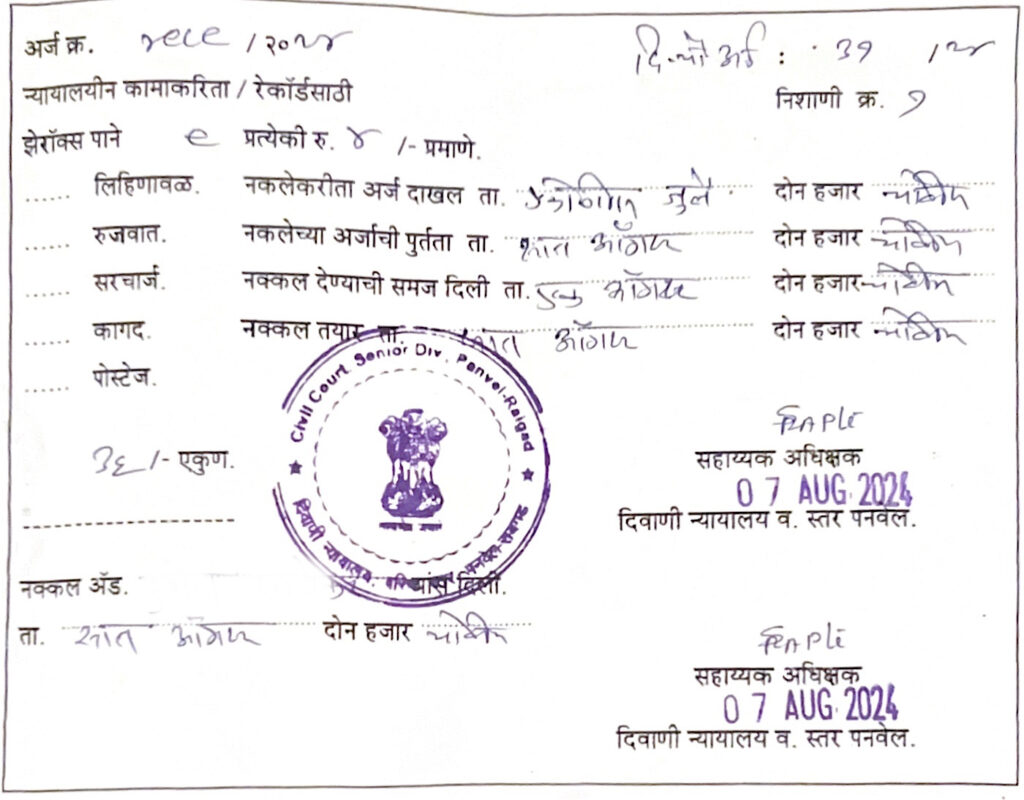 अर्ज क्र. २९८९ /२०२४
दि.चौ.अर्ज : ३१ /२४
न्यायालयीन कामाकरिता / रेकॉर्डसाठी
निशाणी क्र. १
झेरॉक्स पाने ९ प्रत्येकी रु. ४ /- प्रमाणे.
...... लिहिणावळ. नकलेकरीता अर्ज दाखल ता. एकोणतीस जुलै दोन हजार चोवीस
...... रुजवात. नकलेच्या अर्जाची पुर्तता ता. सात ऑगस्ट दोन हजार चोवीस
...... सरचार्ज. नक्कल देण्याची समज दिली ता. एक ऑगस्ट दोन हजार चोवीस
...... कागद. नक्कल तयार ता. सात ऑगस्ट दोन हजार चोवीस
...... पोस्टेज.
Civil Court Senior Div. Panvel-Raigad
दिवाणी न्यायालय, वरिष्ठ स्तर पनवेल-रायगड
३६ /- एकुण.
सहाय्यक अधिक्षक
07 AUG 2024
दिवाणी न्यायालय व. स्तर पनवेल.
नक्कल ॲड. यांस दिली.
ता. सात ऑगस्ट दोन हजार चोवीस
सहाय्यक अधिक्षक
07 AUG 2024
दिवाणी न्यायालय व. स्तर पनवेल.